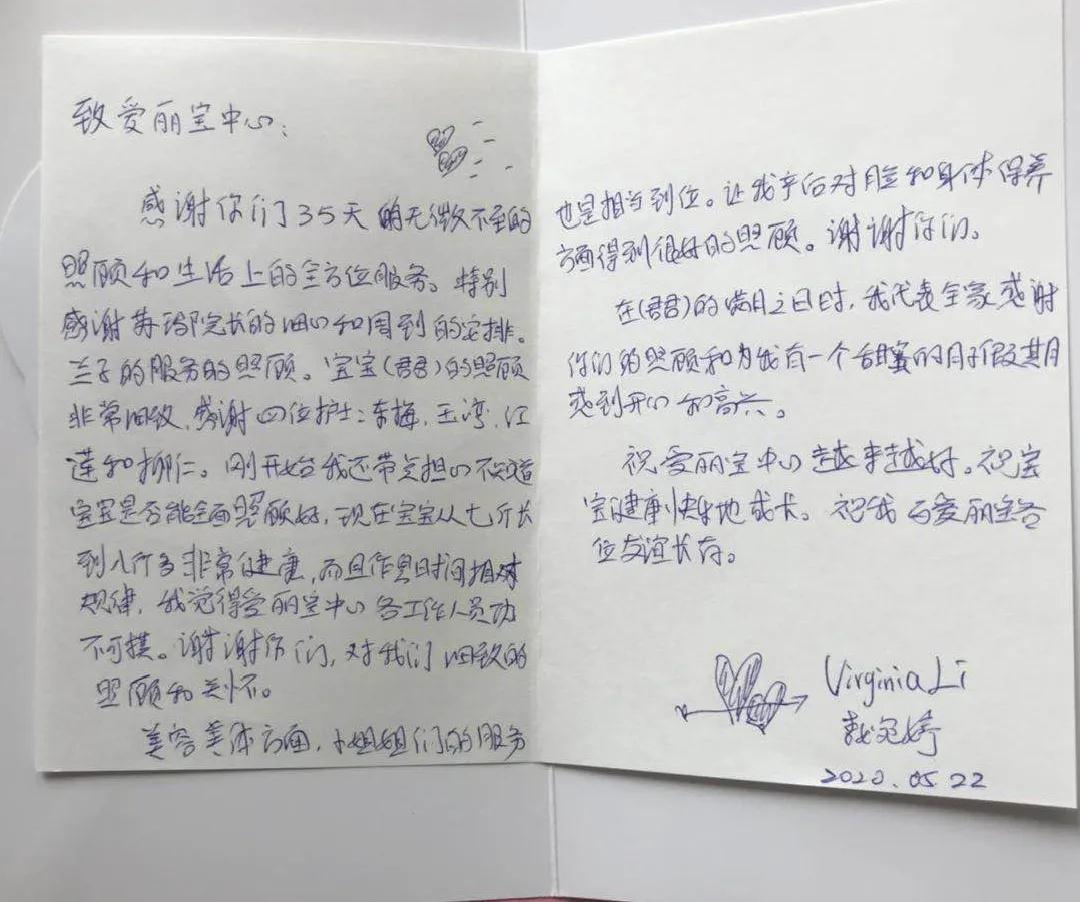 致爱丽宝中心:
感谢你们35天的无微不至的
照顾和生活上的全方位服务。特别
感谢院长的细心和周到的安排。
兰子的服务的照顾。宝宝(君君)的照顾
非常细致,感谢四位护士:东梅,玉湾,江
莲和柳仁。刚开始我还带点担心不知道
宝宝是否能全面照顾好,现在宝宝从七斤长
到八斤多非常健康,而且作息时间相对
规律,我觉得爱丽宝中心各工作人员功
不可摸。谢谢你们,对我们细致的
照顾和关怀。
美容美体方面,小姐姐们的服务
也是相当到位。让我产后对脸和身体保养
方面得到很好的照顾。谢谢你们。
在(君君)的满月之日时,我代表全家感谢
你们的照顾和为我有一个甜蜜的月子假期
感到开心和高兴。
祝爱丽宝中心越来越好。祝宝
宝健康快乐地成长。祝我与爱丽宝各
位友谊长存。
Virginia Li
2020.05.22